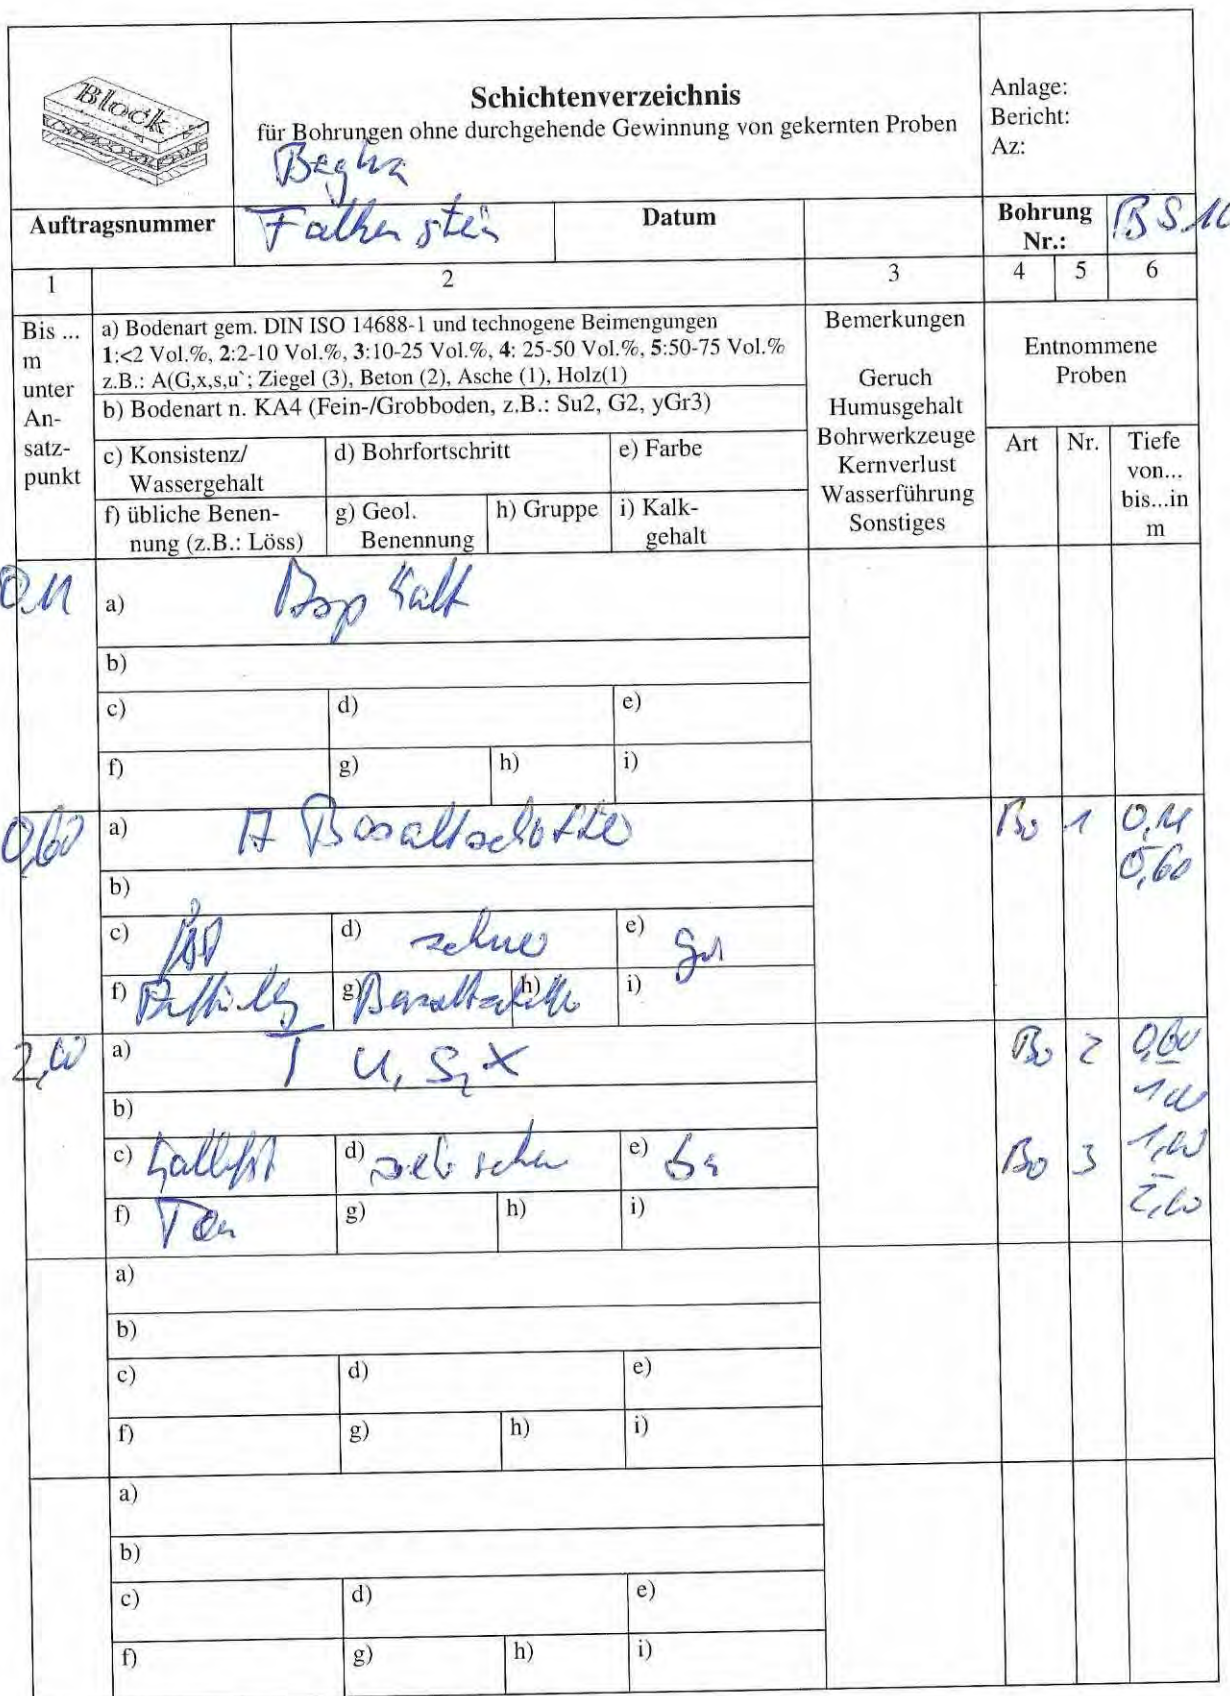 Block
Schichtenverzeichnis
für Bohrungen ohne durchgehende Gewinnung von gekernten Proben
Anlage:
Bericht:
Az:
Auftragsnummer
Datum
Bohrung
Nr.:
1 2 3 4 5 6
Bis ...
m
unter
An-
satz-
punkt
a) Bodenart gem. DIN ISO 14688-1 und technogene Beimengungen
1:<2 Vol.%, 2:2-10 Vol.%, 3:10-25 Vol.%, 4: 25-50 Vol.%, 5:50-75 Vol.%
z.B.: A(G,x,s,u`; Ziegel (3), Beton (2), Asche (1), Holz(1)
b) Bodenart n. KA4 (Fein-/Grobboden, z.B.: Su2, G2, yGr3)
c) Konsistenz/
Wassergehalt
d) Bohrfortschritt
e) Farbe
f) übliche Benen-
nung (z.B.: Löss)
g) Geol.
Benennung
h) Gruppe
i) Kalk-
gehalt
Bemerkungen
Geruch
Humusgehalt
Bohrwerkzeuge
Kernverlust
Wasserführung
Sonstiges
Entnommene
Proben
Art
Nr.
Tiefe
von...
bis...in
m
0,11
a)
b)
c) d) e)
f) g) h) i)
0,60
a) A
Bo 1 0,11
0,60
b)
c) d) e)
f) g) h) i)
2,00
a) T u, s, x
Bo 2 0,60
1,00
b)
c) d) e)
Bo 3 1,00
2,00
f) Ton g) h) i)
a)
b)
c) d) e)
f) g) h) i)
a)
b)
c) d) e)
f) g) h) i)